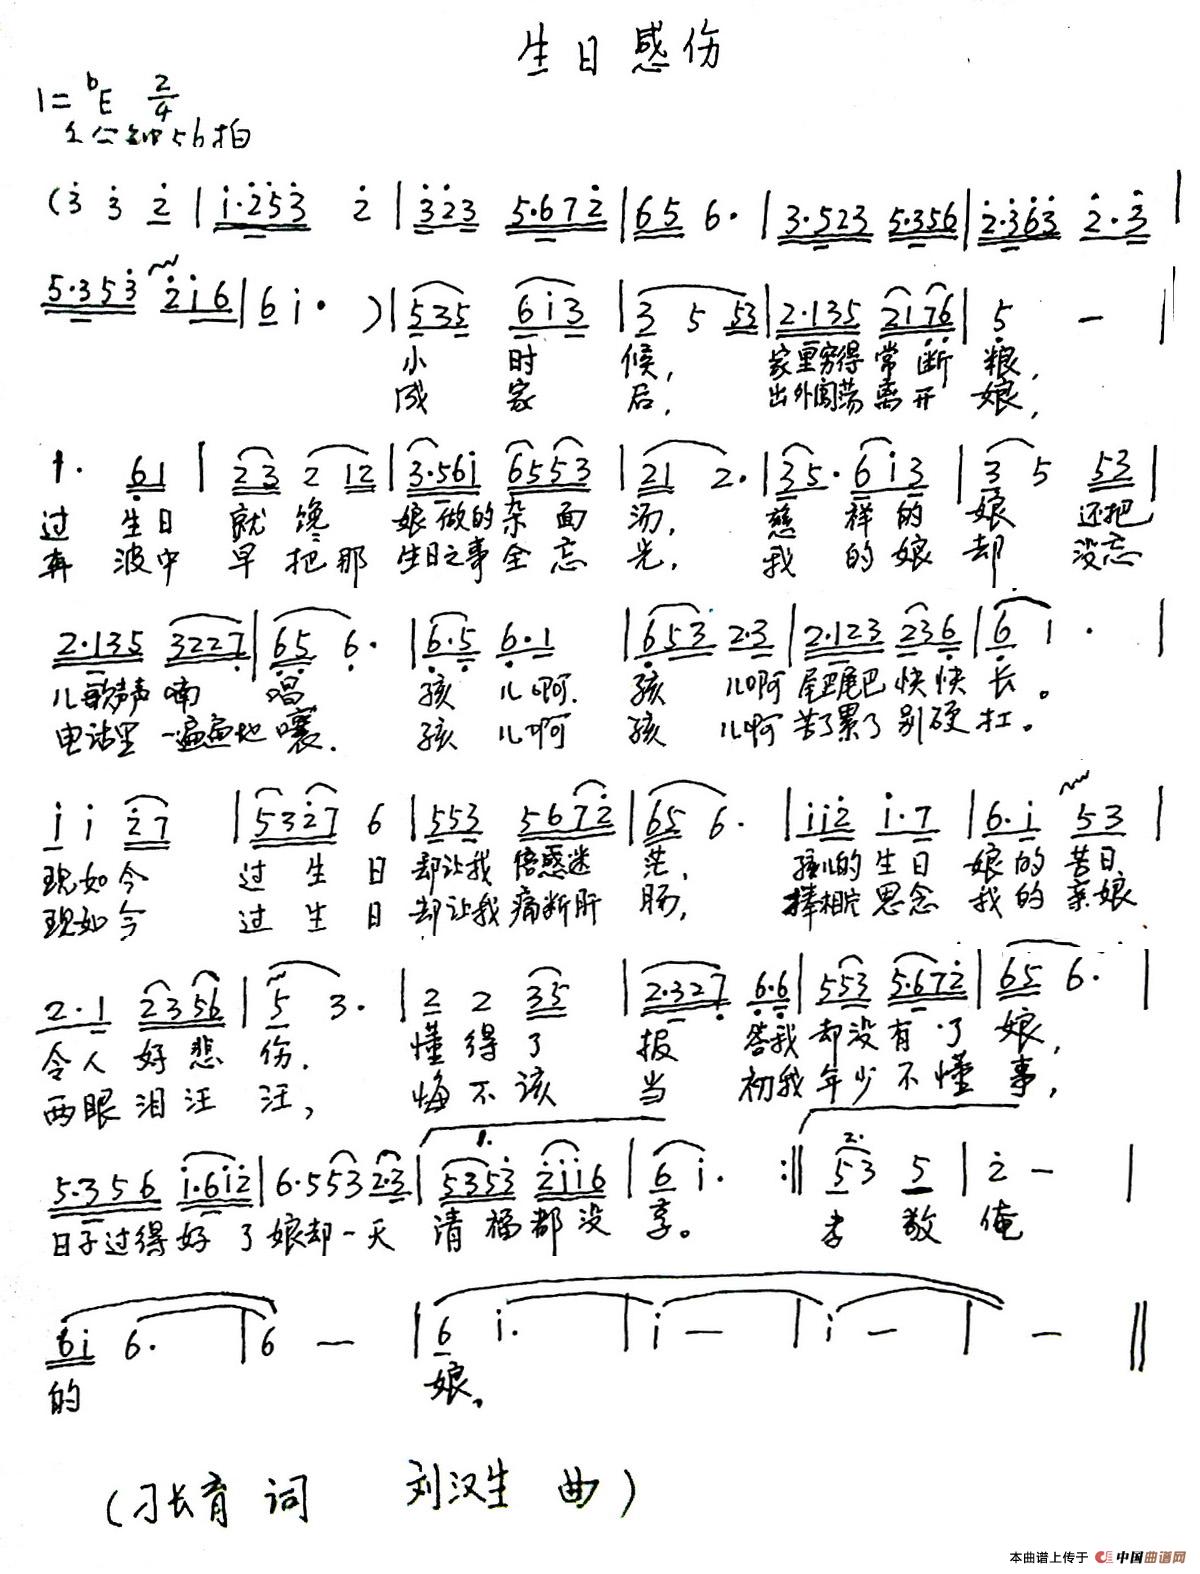 生日感伤
1=ᵇE 2/4
56拍
(3̇ 3̇ 2̇ | i·2̇5̇3̇ 2̇ | 3̇2̇3̇ 5·672̇ | 65 6· | 3·523 5·356 | 2̇·3̇6̇3̇ 2̇·3̇ |
5·353̇ 2̇i6 | 6i· ) | 535 6i3 | 3 5 53 | 2·135 2176 | 5 — |
小 时 候, 家里穷得常断 粮,
成 家 后, 出外闯荡离开 娘,
1· 61 | 23 2 12 | 3·56i 6553 | 21 2· | 35·6i3 | 3 5 53 |
过 生日 就 馋 娘做的杂面 汤, 慈 祥的 娘 还把
奔 波中 早 把那 生日之事全忘 光, 我 的娘 却 没忘
2·135 3227 | 65 6· | 6·5 6·1 | 653 2·3 | 2·123 236 | 6 1 · |
儿歌声喃 唱 孩 儿啊. 孩 儿啊 尾巴尾巴快快 长。
电话里一遍遍地 嚷. 孩 儿啊 孩 儿啊 苦了累了别硬 扛。
i i 2̇7 | 532̇7 6 | 553 5672̇ | 65 6· | ii2̇ i·7 | 6·i 53 |
现如今 过生日 却让我 倍感迷 茫, 孩儿的生日 娘的苦日
现如今 过生日 却让我痛断肝 肠, 捧相片思念 我的亲娘
2·1 2356 | 5 3· | 2 2 35 | 2·327 6·6 | 553 5·672̇ | 65 6· |
令人好悲 伤. 懂得了 报 答我 却没有了 娘,
两眼泪汪 汪, 悔不该 当 初我年少不懂 事,
5·356 i·6i2̇ | 6·553 2·3 | 1. 5353̇ 2̇ii6 | 6 i· :‖ 2. 53 5 | 2̇ — |
日子过得好了娘却一天 清福都没 享。 孝 敬 俺
6i 6· | 6 — | 6 i· | i — | i — | — ‖
的 娘。
(刁长育 词 刘汉生 曲)
本曲谱上传于 中国曲谱网